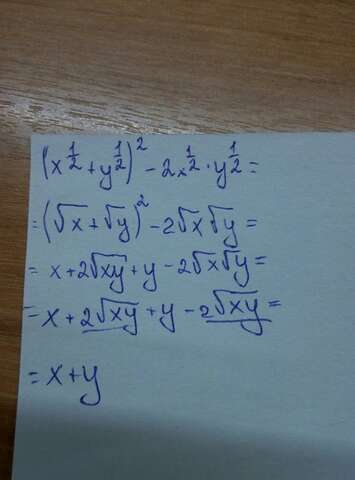 (x^{1/2} + y^{1/2})^2 - 2x^{1/2} · y^{1/2} =
= (√x + √y)^2 - 2√x√y =
= x + 2√xy + y - 2√x√y =
= x + 2√xy + y - 2√xy =
= x + y